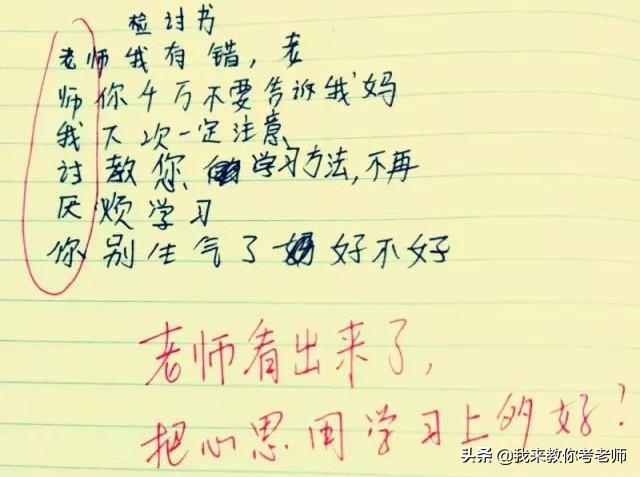 检讨书
老师我有错，老
师你千万不要告诉我妈
我下次一定注意
讨教您学习方法，不再
厌烦学习
你别生气了好不好
老师看出来了，
把心思用学习上多好！
头条 @我来教你考老师